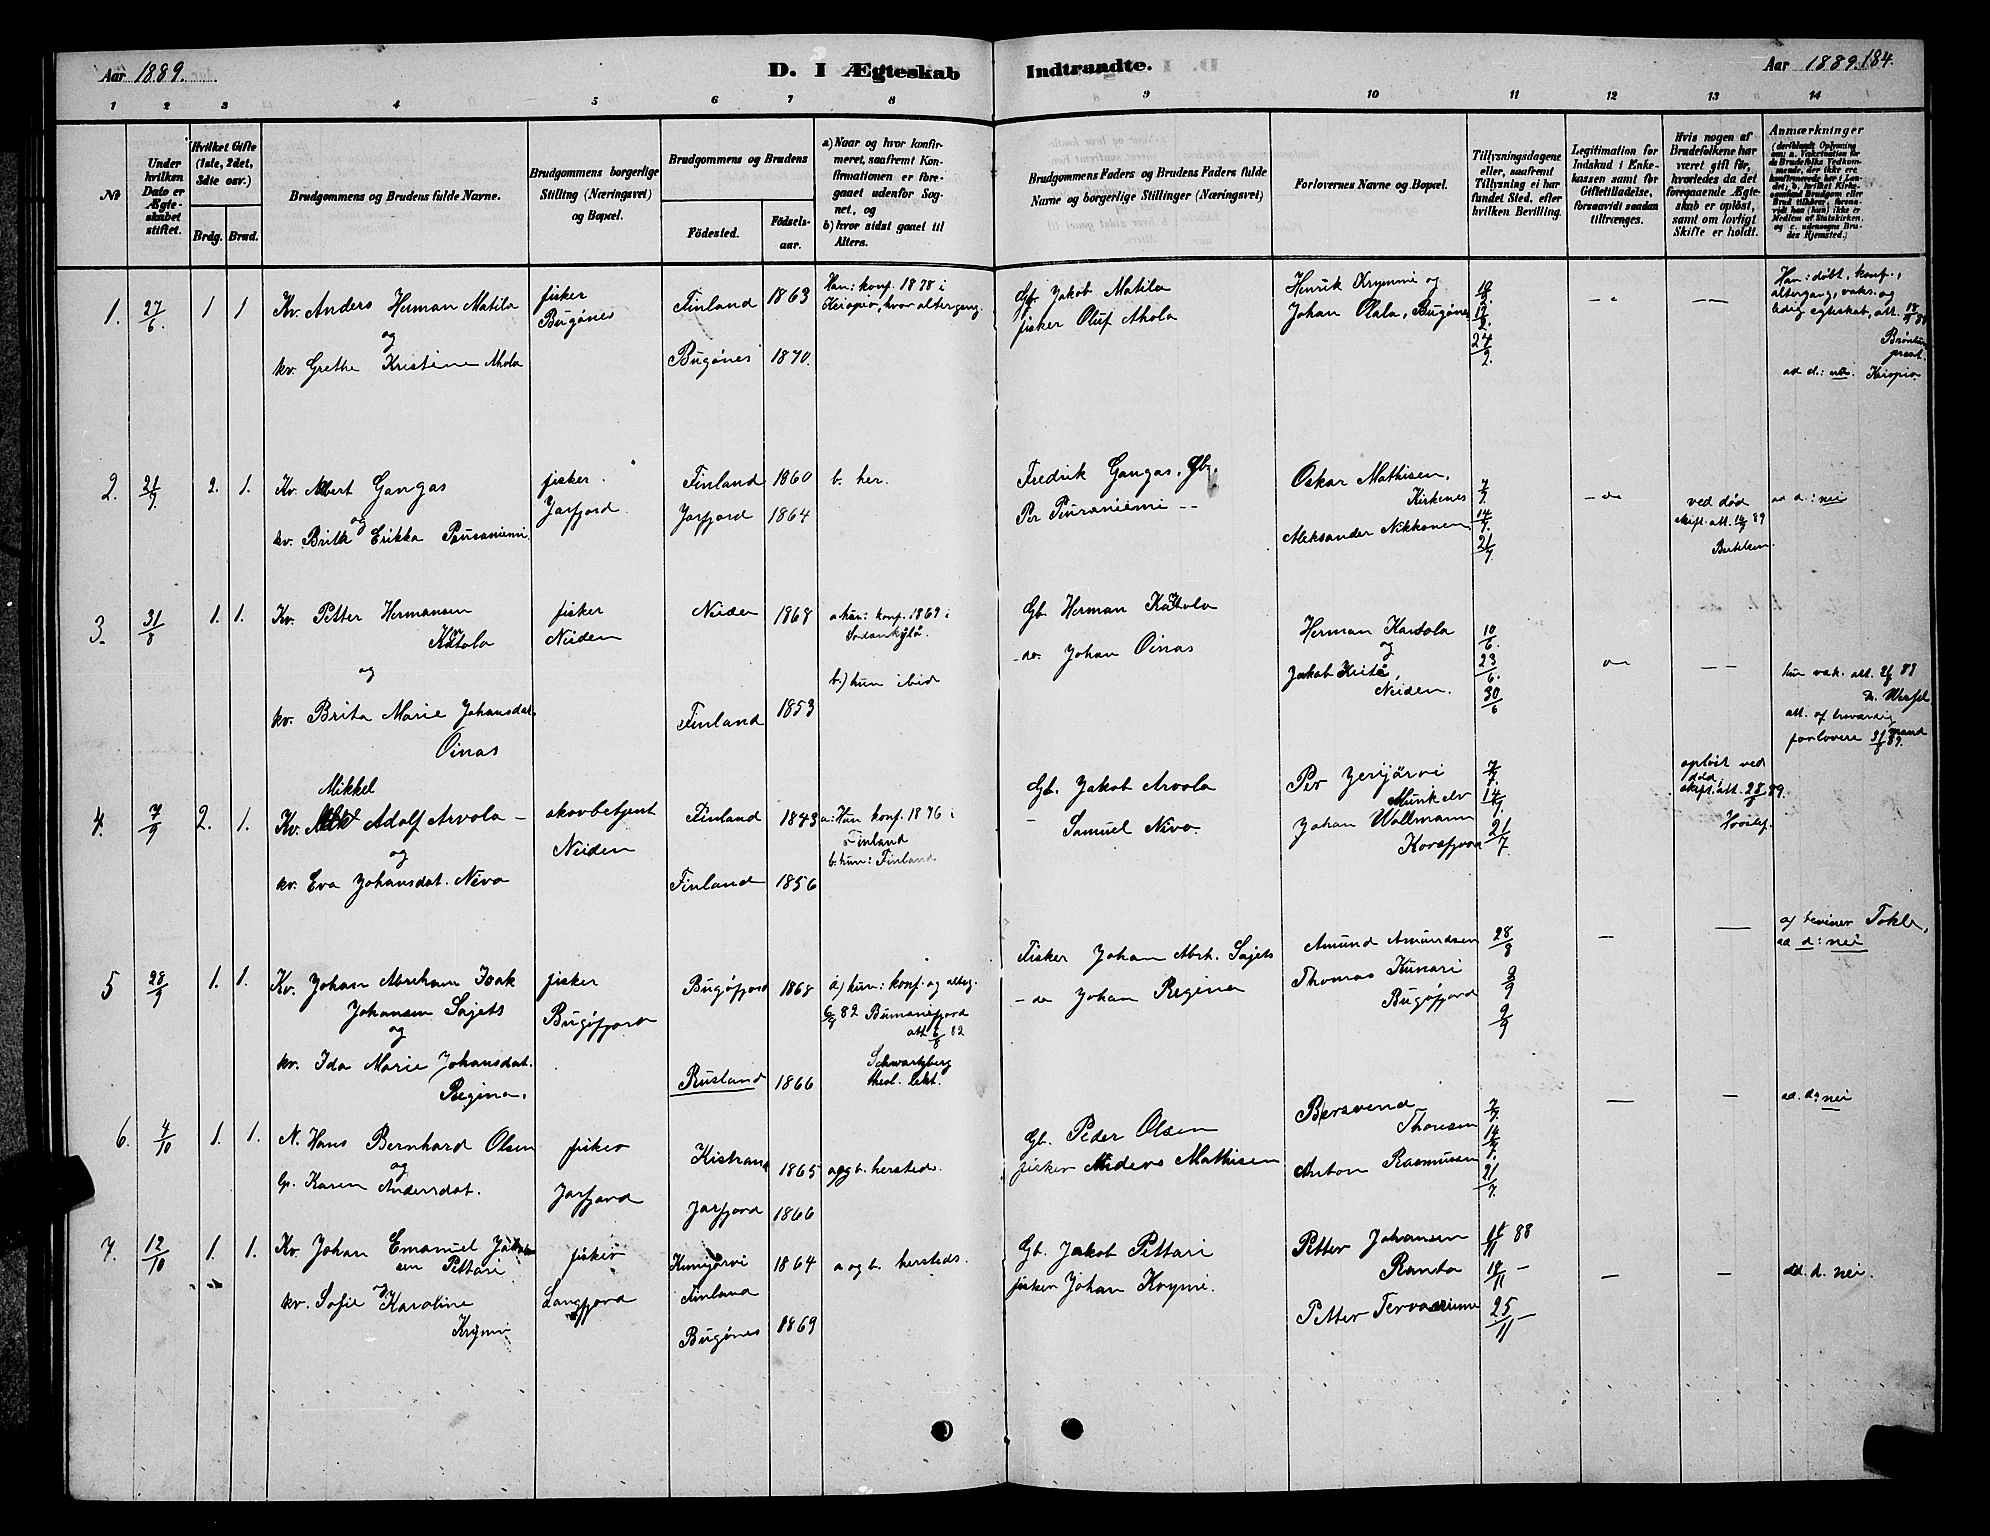 Aar 1889.
D. I Ægteskab
Indtraadte.
Aar 1889. 184.
1 2 3 4 5 6 7 8
9 10 11 12 13 14
№
Under hvilken Dato er Ægteskabet stiftet.
Hvilket Gifte (1ste, 2det, 3die osv.)
Brdg. Brud.
Brudgommens og Brudens fulde Navne.
Brudgommens borgerlige Stilling (Næringsvei) og Bopæl.
Brudgommens og Brudens
Födested.
Födsels-aar.
a) Naar og hvor konfirmeret, saafremt Konfirmationen er foregaaet udenfor Sognet, og
b) hvor sidst gaaet til Alters.
Brudgommens Faders og Brudens Faders fulde Navne og borgerlige Stillinger (Næringsvei)
Forlovernes Navne og Bopæl.
Tillysningsdagene eller, saafremt Tillysning ei har fundet Sted, efter hvilken Bevilling.
Legitimation for Indskud i Enkekassen samt for Giftetilladelse, forsaavidt saadan tiltrænges.
Hvis nogen af Brudefolkene har været gift før, hvorledes da det foregaaende Ægteskab er opløst, samt om lovligt Skifte er holdt.
Anmærkninger
1. 27/6 1 1 Kv. Anders Herman Matila
og
kv. Grethe Kristine Ahola
fisker
Bugönes
Finland 1863
Bugönes 1870.
Han: konf. 1878 i
Kuopio, hvor altergang.
Gbr. Jakob Matila
fisker Oluf Ahola
Henrik Krymmi og
Johan Olala, Bugönes
10/2. 17/2. 24/2.
Han: döbt, konf.,
altergang, vaks. og
ledig egteskab, att.
ad d.: nei. Kuopio.
2. 21/7. 2. 1. Kv. Albert Gangas
og
kv. Brita Erikka Pauraniemi
fisker.
Jarfjord.
Finland 1860
Jarfjord 1864
b. her.
Fredrik Gangas, Gbr.
Per Pauraniemi --
Oskar Mathisen,
Kirkenes
Aleksander Nikkonen
7/7. 14/7. 21/7.
ved död
skift. att. 89
ad d.: nei
3. 31/8 1. 1. Kv. Petter Hermansen
Katola
og
kv. Brita Marie Johansdat.
Oinas
fisker
Neiden
Neiden 1868
Finland 1853
konf. 1869 i
Sodankylä.
b.) hun ibid
Gb. Herman Kattola
do. Johan Oinas
Herman Kantola
og
Jakob Keitä,
Neiden.
10/6. 23/6. 30/6
hun vak. att.
att. af troværdig mand
forlovere 31/8 89.
4. 7/9 2. 1. Mikkel
Kv. Adolf Arvola
og
kv. Eva Johansdat. Nivo
skovbetjent
Neiden
Finland 1843
Finland 1856
a: Hun konf. 1876 i
Finland
b. hun: Finland.
Gb. Jakob Arvola
Samuel Nivo.
Per Jerijärvi
Munkelv
Johan Wallmann
Korsfjord
7/7. 14/7. 21/7.
oplöst ved
död
skift. att. 28/8 89.
5 28/9 1. 1. Kv. Johan Abraham Isak
Johansen Sajets
og
kv. Ida Marie Johansdat.
Regina.
fisker
Bugöfjord
Bugöfjord 1868
Rusland 1866
a) hun: konf. og alterg.
82 Bumansfjord
att. 6/8 82
Schwartzberg
theol. lekt.
Fisker Johan Abrh. Sajets
- do Johan Regina
Amund Amundsen
Thomas Kunari
Bugöfjord
af beviser Tokle,
ad d: nei
6. 4/10 1. 1. N. Hans Bernhard Olsen
og
Gp. Karen Andersdat.
fisker
Jarfjord
Kistrand 1865
Jarfjord 1866
a og b. hersteds.
Gb. Peder Olsen
fisker Anders Mathisen
Bersvend
Thoresen
Anton Rasmussen
7/7. 14/7. 21/7.
ad. d: nei
7. 12/10 1. 1. Kv. Johan Emanuel Jakobsen
Pettari
og
kv. Sofie Karoline
Krymi
fisker
Langfjord
Kemijärvi 1864
Finland
Bugönes 1869
a og b. hersteds.
Gb. Jakob Pettari
fisker Johan Krymi.
Petter Johansen
Ranta
Petter
11/11 88
18/11 -
25/11 -
ad. d. nei.